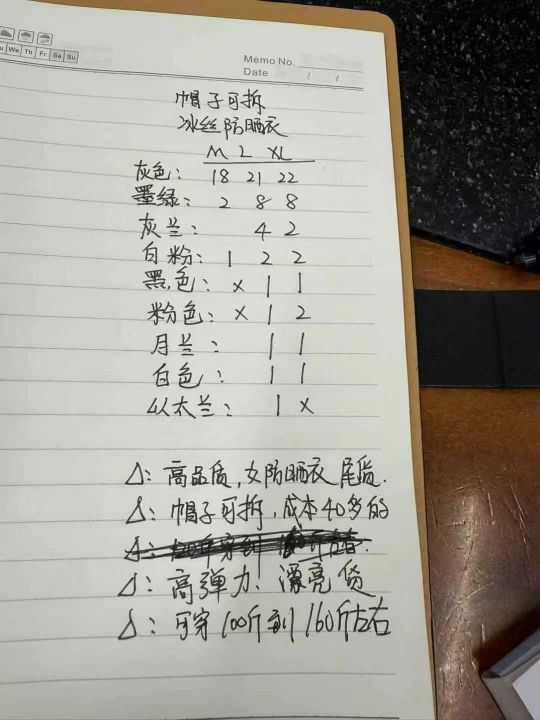 We Th Fr Sa Su
Memo No.
Date / /
帽子可拆
冰丝防晒衣
M L XL
灰色: 18 21 22
墨绿: 2 8 8
灰兰: 4 2
白粉: 1 2 2
黑色: x 1 1
粉色: x 1 2
月兰: 1 1
白色: 1 1
以太兰: 1 x
△: 高品质,女防晒衣尾货.
△: 帽子可拆,成本40多的
△: 高弹力、漂亮货
△: 可穿100斤到160斤左右